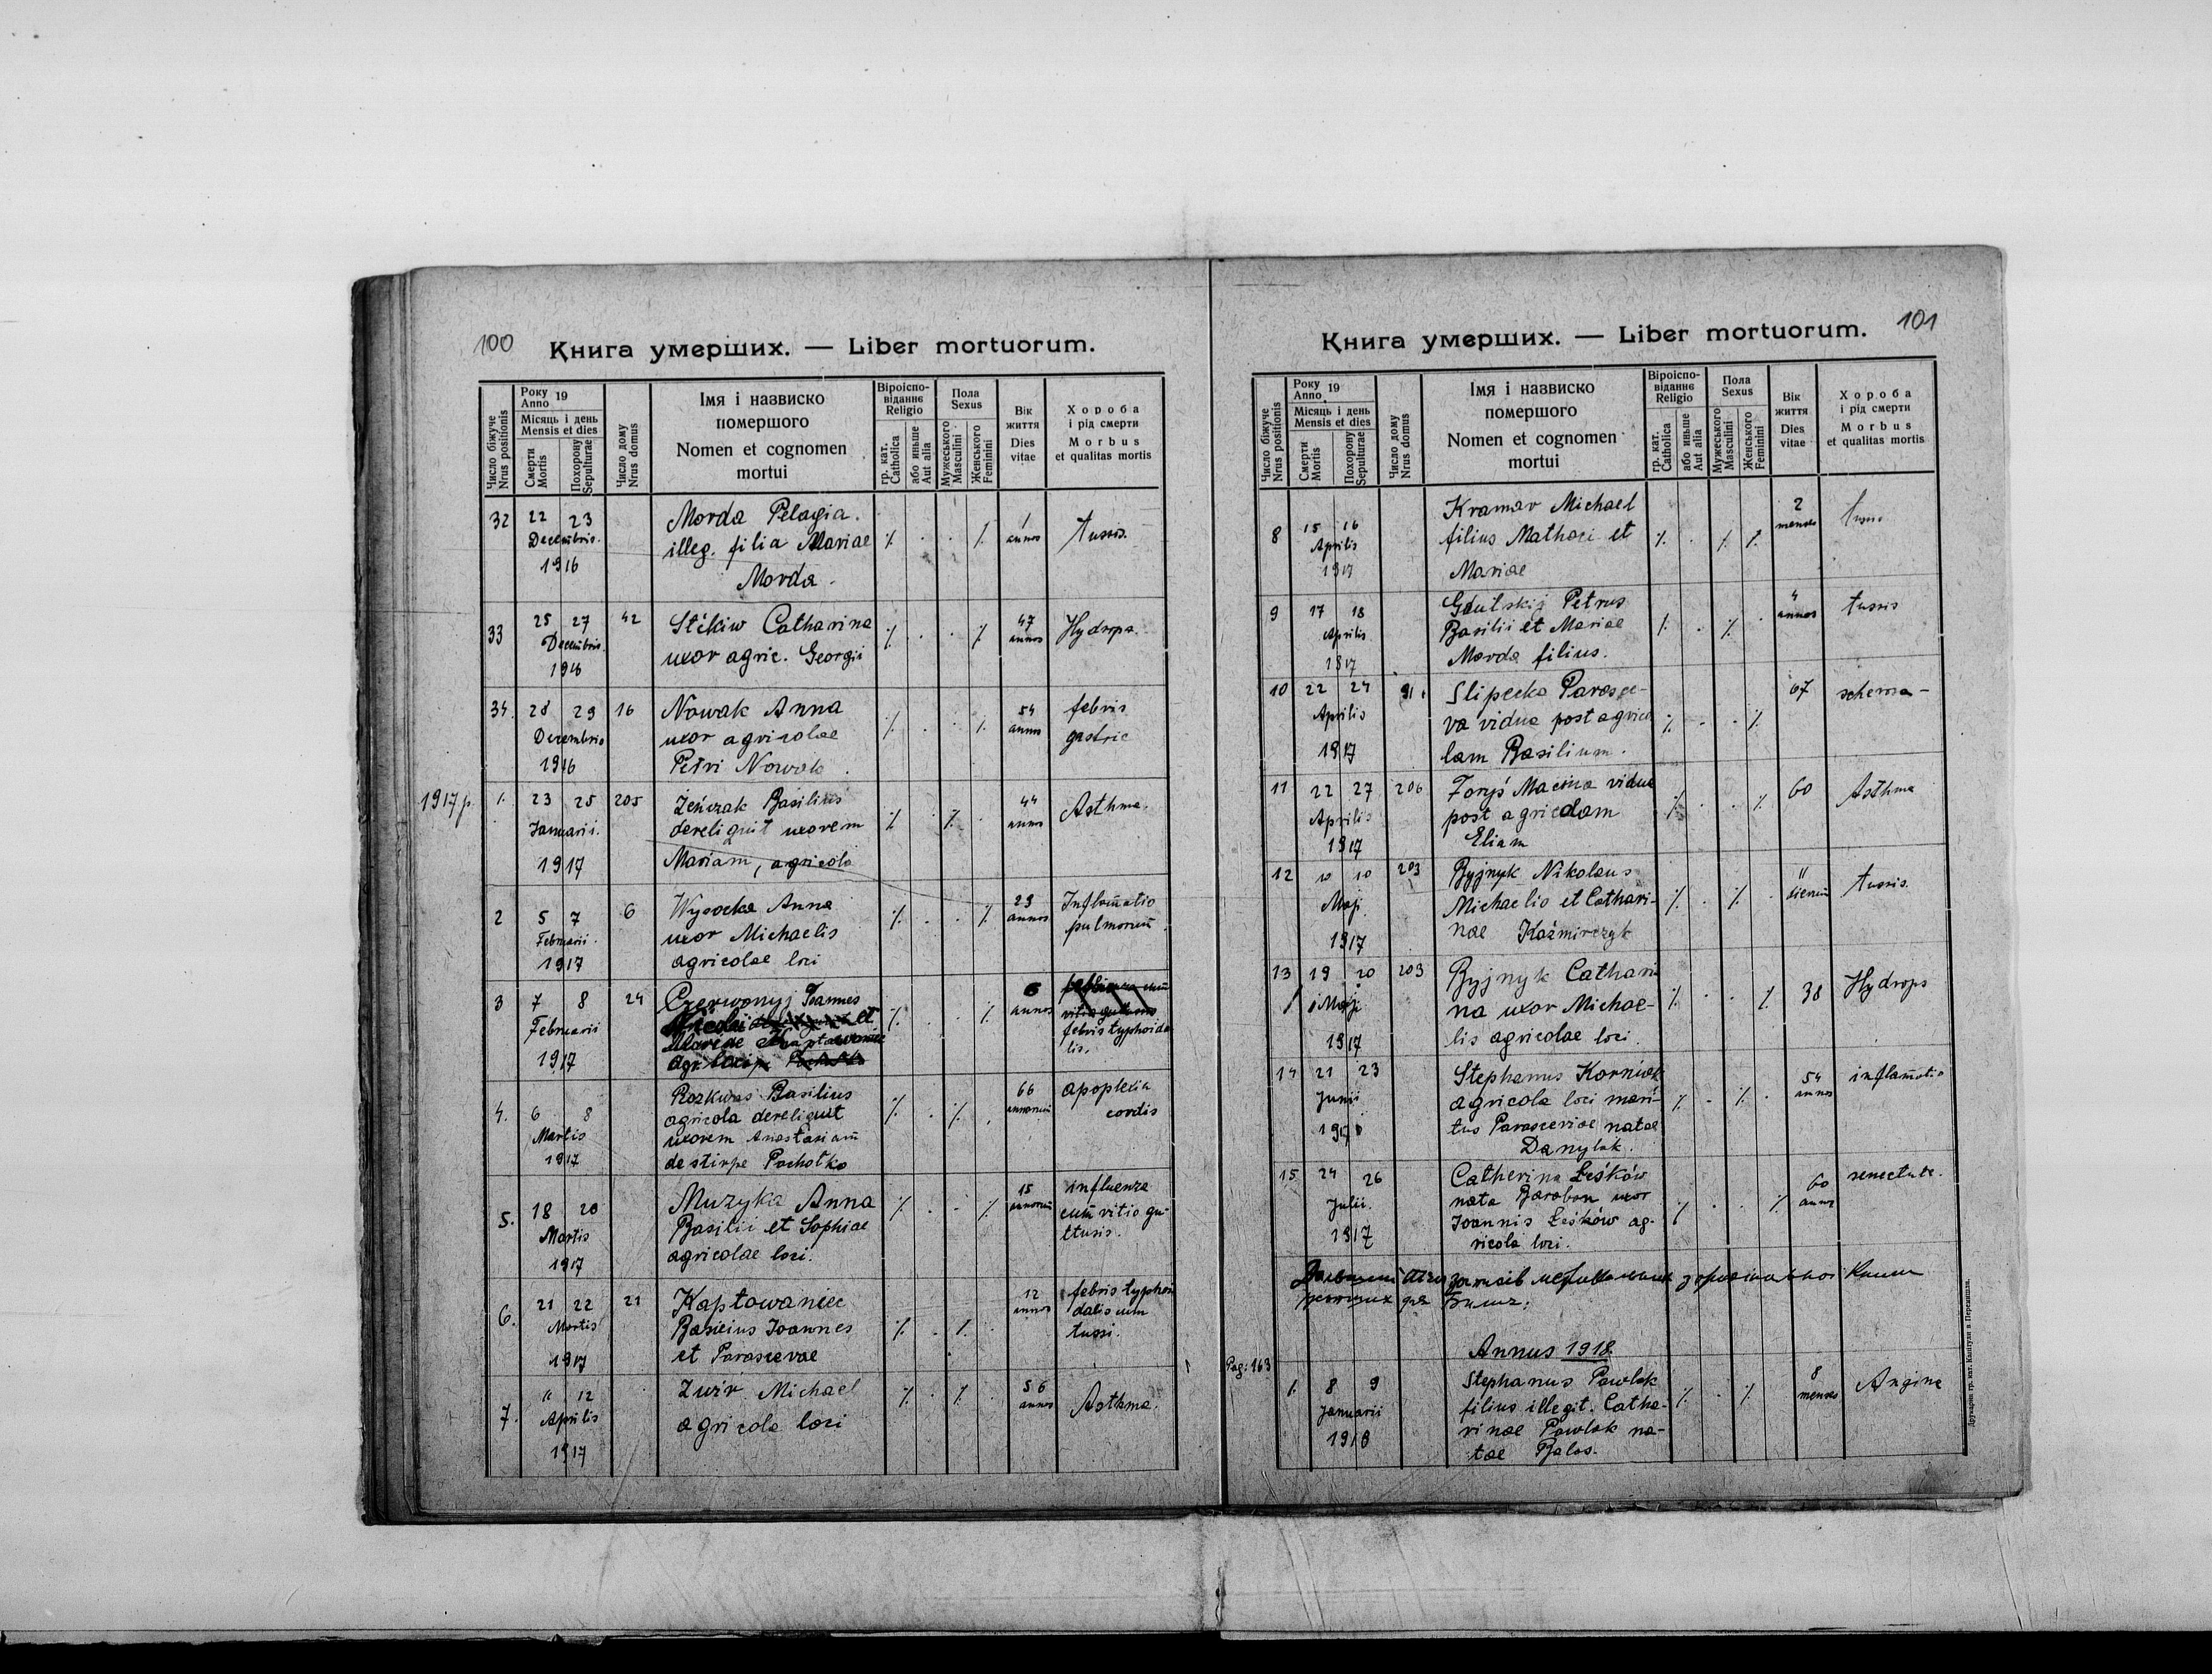 100
Книга умерших. — Liber mortuorum.
Число біжуче
Nrus positionis
Року
Anno 19
Місяць і день
Mensis et dies
Смерти
Mortis
Похорону
Sepulturae
Число дому
Nrus domus
Імя і назвиско
помершого
Nomen et cognomen
mortui
Віроіспо-
віданнє
Religio
гр. кат.
Catholica
або иньше
Aut alia
Пола
Sexus
Мужеського
Masculini
Женського
Feminini
Вік
життя
Dies
vitae
Хороба
і рід смерти
Morbus
et qualitas mortis
32 22 23 Decembris. 1916
Morda Pelagia.
illeg. filia Mariae
Morda.
1 annos
tussis.
33 25 27 Decembris. 1916 42
Stékiw Catharina
uxor agric. Georgii
47 annos
Hydrops.
34. 28 29 Decembris 1916 16
Nowak Anna
uxor agricolae
Petri Nowak.
54 annos
febris
gastric
1917 р.
1. 23 25 Januarii. 1917 205
Żeńczak Basilius
dereliquit uxorem
Mariam, agricola
44 annos
Asthma.
2 5 7 Februarii. 1917 6
Wysocka Anna
uxor Michaelis
agricolae loci
23 annos
Inflamatio
pulmonum.
3 7 8 Februarii 1917 24
Czerwonyj Joannes
Nicolai et
6 annos
febris typhoida
lis.
4. 6 8 Martis 1917
Rozkwas Basilius
agricola dereliquit
uxorem Anastasiam
de stirpe Pochołko
66 annorum
apoplexia
cordis
5. 18 20 Martis 1917
Muzyka Anna
Basilii et Sophiae
agricolae loci.
15 annorum
influenza
cum vitio gu-
ttusis.
6. 21 22 Martis 1917 21
Kaptowaniec
Basilius Joannes
et Parascevae
12 annos
febris typhoi
dalis cum
tussi.
7. 11 12 Aprilis 1917
Zwir Michael
agricola loci
56 annos
Asthma.
Книга умерших. — Liber mortuorum.
101
Число біжуче
Nrus positionis
Року
Anno 19
Місяць і день
Mensis et dies
Смерти
Mortis
Похорону
Sepulturae
Число дому
Nrus domus
Імя і назвиско
помершого
Nomen et cognomen
mortui
Віроіспо-
віданнє
Religio
гр. кат.
Catholica
або иньше
Aut alia
Пола
Sexus
Мужеського
Masculini
Женського
Feminini
Вік
життя
Dies
vitae
Хороба
і рід смерти
Morbus
et qualitas mortis
8 15 16 Aprilis 1917
Kramar Michael
filius Mathaei et
Mariae
2 menses
9 17 18 Aprilis 1917
Petrus
Basilii et Mariae
Morda filius.
4 annos
tussis
10 22 24 Aprilis 1917 91
Slipecka Parasce-
va vidua post agrico
lam Basilium.
67
11 22 27 Aprilis 1917 206
Foryś Macrina vidua
post agricolam
Eliam
60
Asthma
12 10 10 Maji 1917 203
Byjnyk Nikolaus
Michaelis et Cathari-
nae Kaźmirczyk
11 dierum
tussis.
13 19 20 Maji 1917 203
Byjnyk Cathari
na uxor Michae-
lis agricolae loci.
38
Hydrops
14 21 23 Junii
Stephanus Korniak
agricola loci mari-
tus Parasceviae natae
Danylak.
54 annos
inflamatio
15 24 26 Julii. 1917
Catherina Leśków
nata Baraban uxor
Joannis Leśków ag-
ricola loci.
60 annos
senectute.
Annus 1918.
Pag: 163
1. 8 9 Januarii 1918
Stephanus Pawlak
filius illegit. Catha-
rinae Pawlak na-
tae Balas.
8 menses
Angina